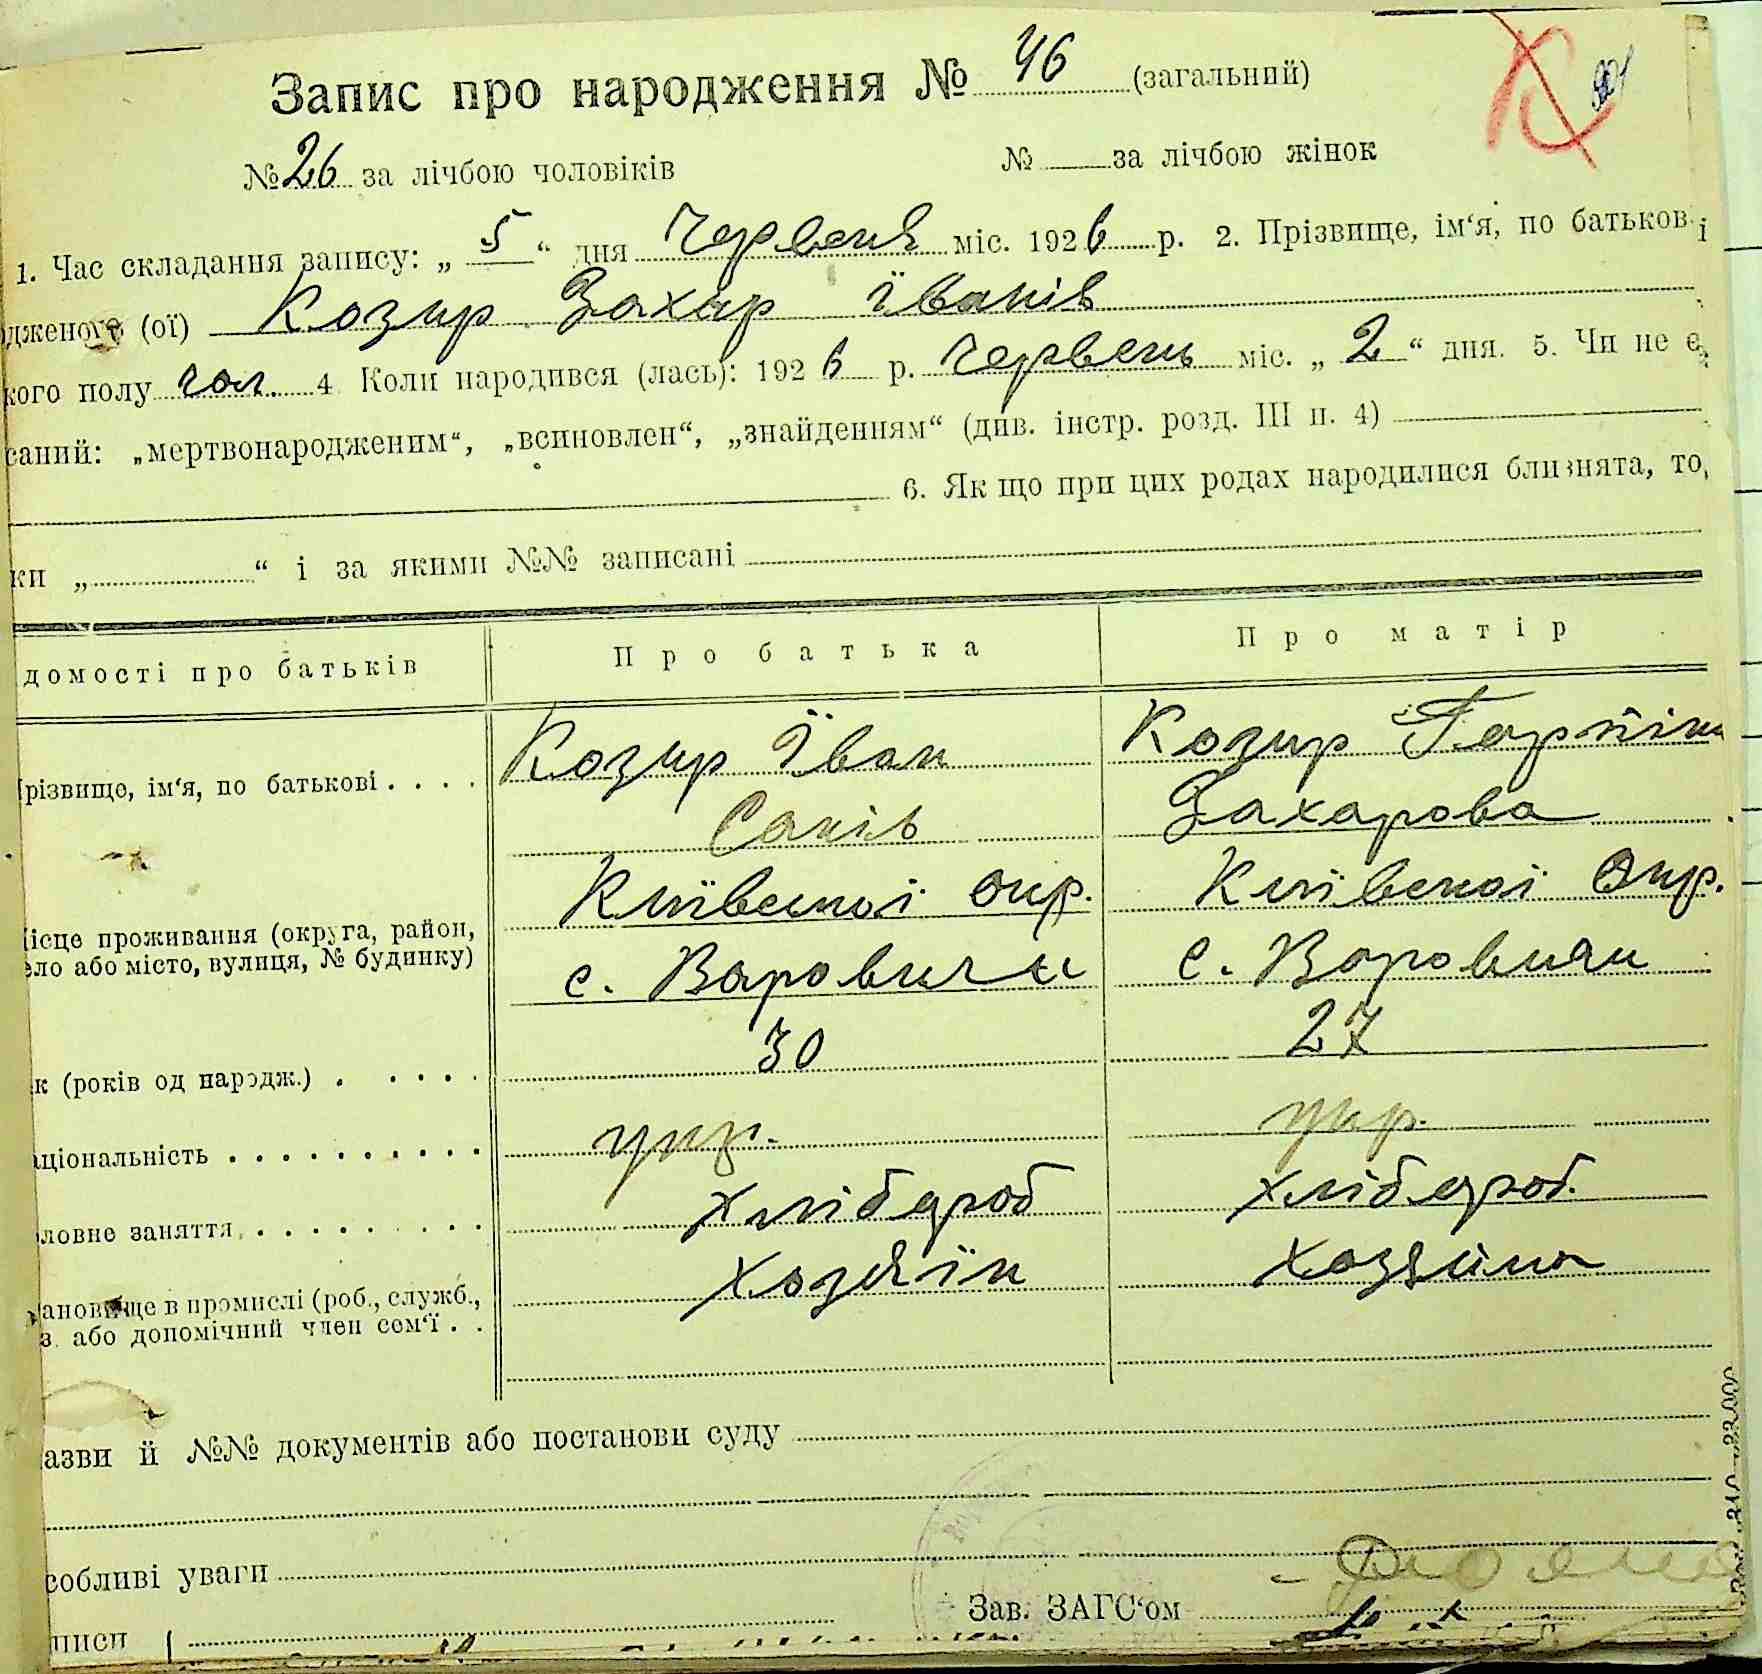 Запис про народження № 46 (загальний)
№ 26 за лічбою чоловіків № за лічбою жінок
1. Час складання запису: „ 5 “ дня Червеня міс. 1926 р. 2. Прізвище, ім‘я, по батькові
дженого (ої) Козир Захар Їванів
кого полу чол. 4 Коли народився (лась): 1926 р. Червень міс. „ 2 “ дня. 5. Чи не є
саний: „мертвонародженим“, „всиновлен“, „знайденням“ (див. інстр. розд. III п. 4)
6. Як що при цих родах народилися близнята, то
ки „ “ і за якими №№ записані
домості про батьків Про батька Про матір
різвище, ім‘я, по батькові Козир Їван Козир
Захарова
Київської окр. Київскої Окр.
ісце проживання (округа, район,
ело або місто, вулиця, № будинку) с. Варовичи с. Варовичи
к (років од народж.) 30 27
аціональність укр. укр.
ловне заняття хлібороб хлібороб.
ановище в промислі (роб., служб., Хозяїн Хозяїна
з. або допомічний член сем‘ї
азви й №№ документів або постанови суду
собливі уваги
Зав. ЗАГС‘ом
писи